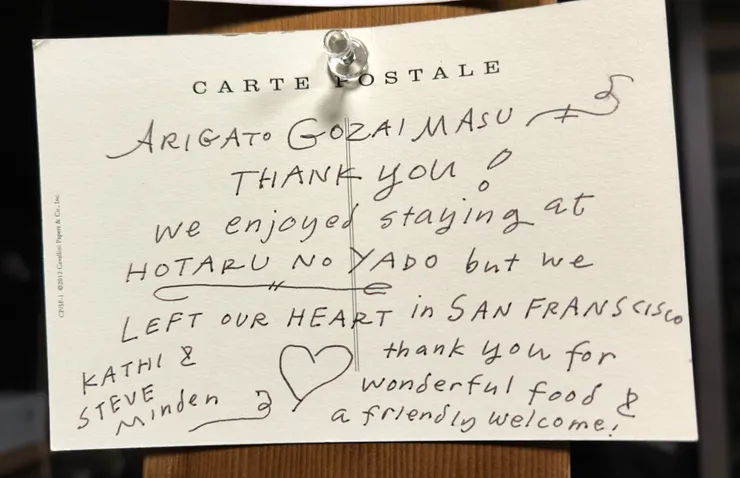 CARTE POSTALE
ARIGATO GOZAIMASU
THANK YOU!
we enjoyed staying at
HOTARU NO YADO but we
LEFT OUR HEART in SAN FRANSCISCO
KATHI &
STEVE
Minden
thank you for
wonderful food &
a friendly welcome!
CP/SF-1 ©2012 Cavallini Papers & Co., Inc.